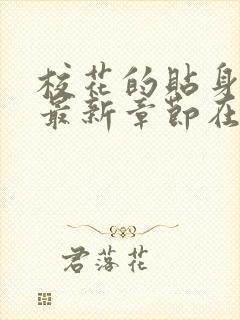 校花的貼身
最新章節在
君落花